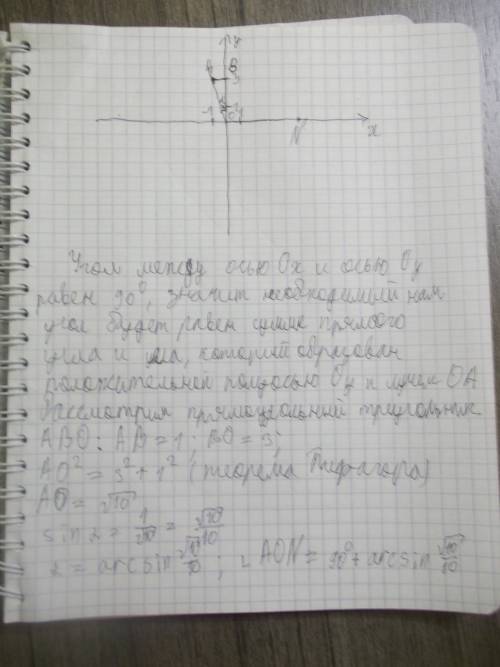 y
A B
3
-1 α 0 1
N x
Угол между осью Ox и осью Oy
равен 90°, значит необходимый нам
угол будет равен сумме прямого
угла и угла, который образован
положительной полуосью Oy и лучом OA
Рассмотрим прямоугольный треугольник
ABO: AB = 1; BO = 3;
AO² = 3² + 1² (теорема Пифагора)
AO = √10
sin α = 1/√10 = √10/10
α = arcsin √10/10, ∠AON = 90° + arcsin √10/10